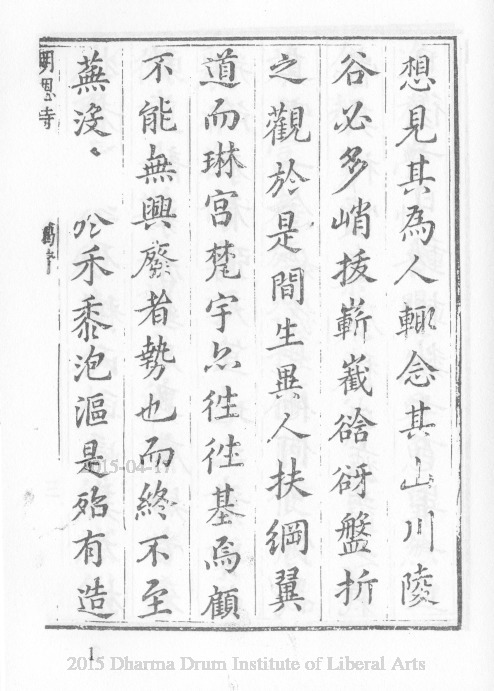 想見其為人輙念其山川陵
谷必多峭拔嶄巀谽谺盤折
之觀於是間生異人扶綱翼
道而琳宮梵宇亦徃徃基焉顧
不能無興廢者勢也而終不至
蕪沒於禾黍泡漚是殆有造
明因寺
2015-04-17
1
2015 Dharma Drum Institute of Liberal Arts